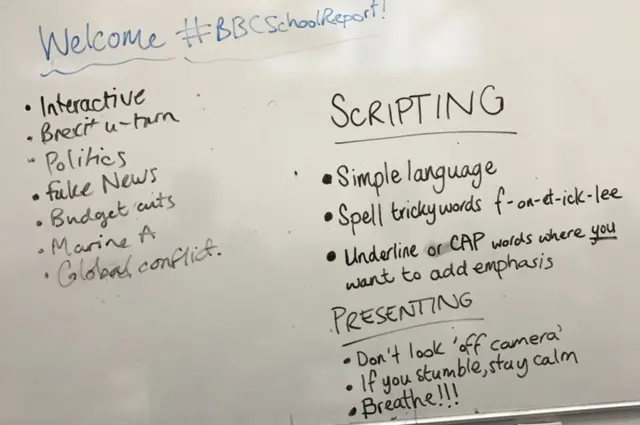 Welcome #BBCSchoolReport!
• Interactive
• Brexit u-turn
• Politics
• fake News
• Budget cuts
• Marine A
• Global conflict.
SCRIPTING
• Simple language
• Spell tricky words f-on-et-ick-lee
• Underline or CAP words where you
want to add emphasis
PRESENTING
• Don't look 'off camera'
• If you stumble, stay calm
• Breathe!!!